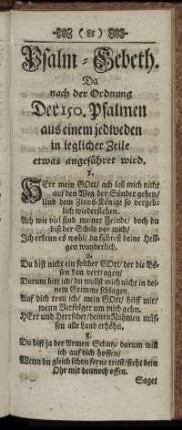 ( 81 )
Psalm-Gebeth.
Da
nach der Ordnung
Der 150. Psalmen
aus einem jedweden
in ieglicher Zeile
etwas angeführet wird.
1.
HErr mein GOtt/ ach laß mich nicht
auf den Weg der Sünder gehen/
Und dem Zions-Könige so vergeb-
lich wiederstehen.
Ach wie viel sind meiner Feinde/ doch du
bist der Schild vor mich/
Ich erkenn es wohl/ du führest deine Heili-
gen wunderlich.
2.
Du bist nicht ein solcher GOtt/ der die Bö-
sen kan vertragen/
Darum bitt ich/ du wollst mich nicht in dei-
nem Grimme schlagen.
Auf dich trau ich/ mein GOtt/ hilff mir/
wenn Verfolger um mich stehn,
HErr und Herrscher/ deinen Nahmen müs-
sen alle Land erhöhn.
3.
Du bist ja der Armen Schutz/ darum will
ich auf dich hoffen/
Wenn du gleich schon ferne trittst/ steht dein
Ohr mir dennoch offen.
Saget